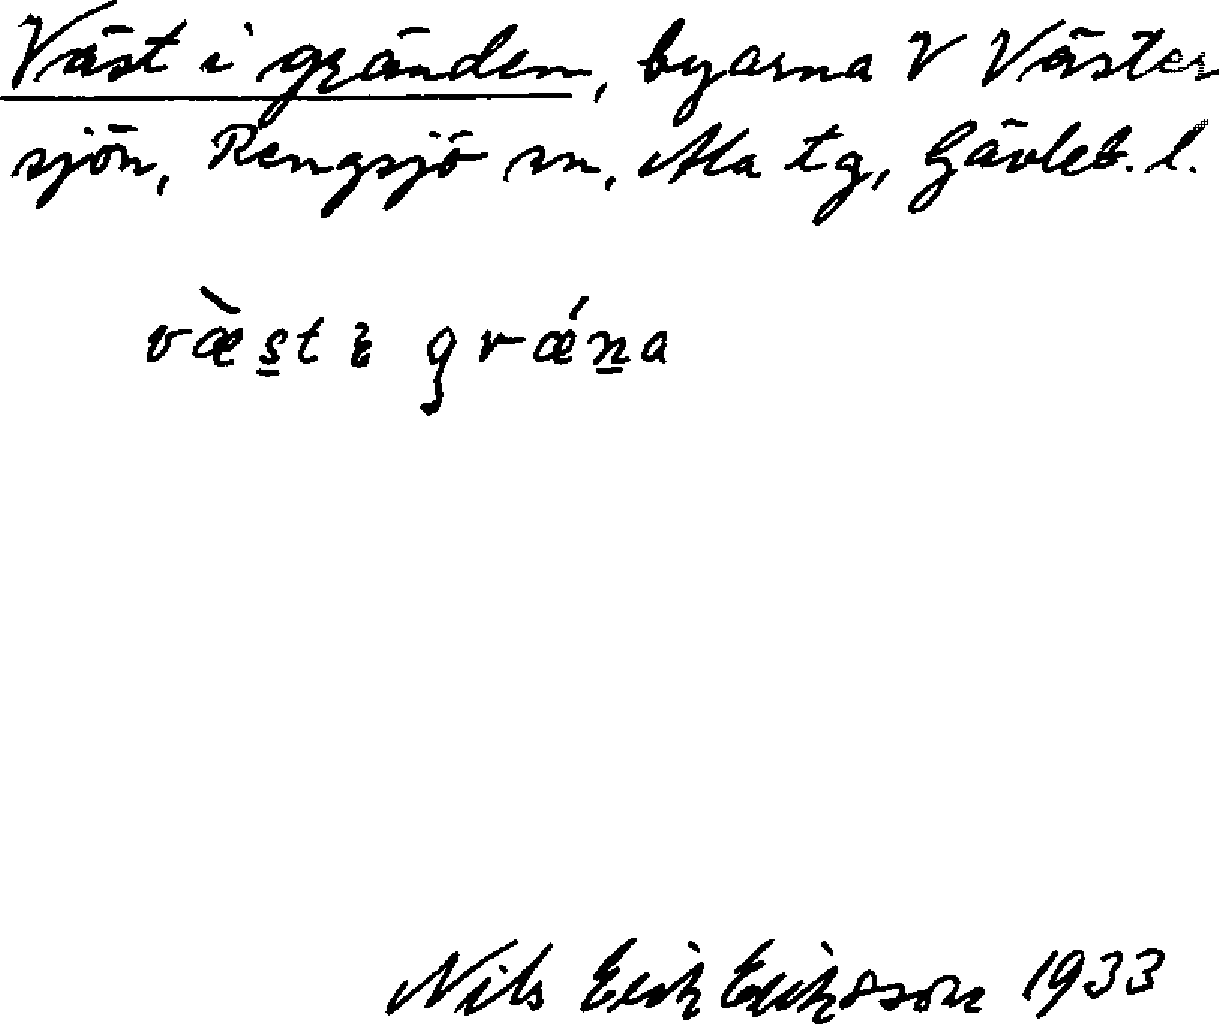 Väst i gränden, byarna V Väster
sjön, Rengsjö sn, Ala tg, Gävleb. l.
væ̀s̲t i grǽn̲a
Nils Erik Eriksson 1933